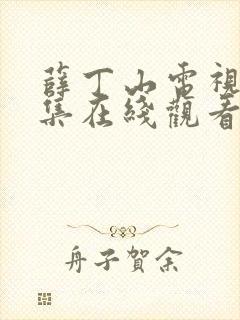 薛丁山電視
集在綫觀看
舟子賀余